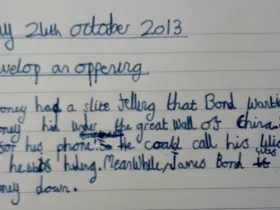 y 24th october 2013
velop an offering
oney had a slite telling that Bond wanti
oney hid under the great wall of China.
for his phone. So he could call his
he hiding. Meanwhile, James Bond
oney down.